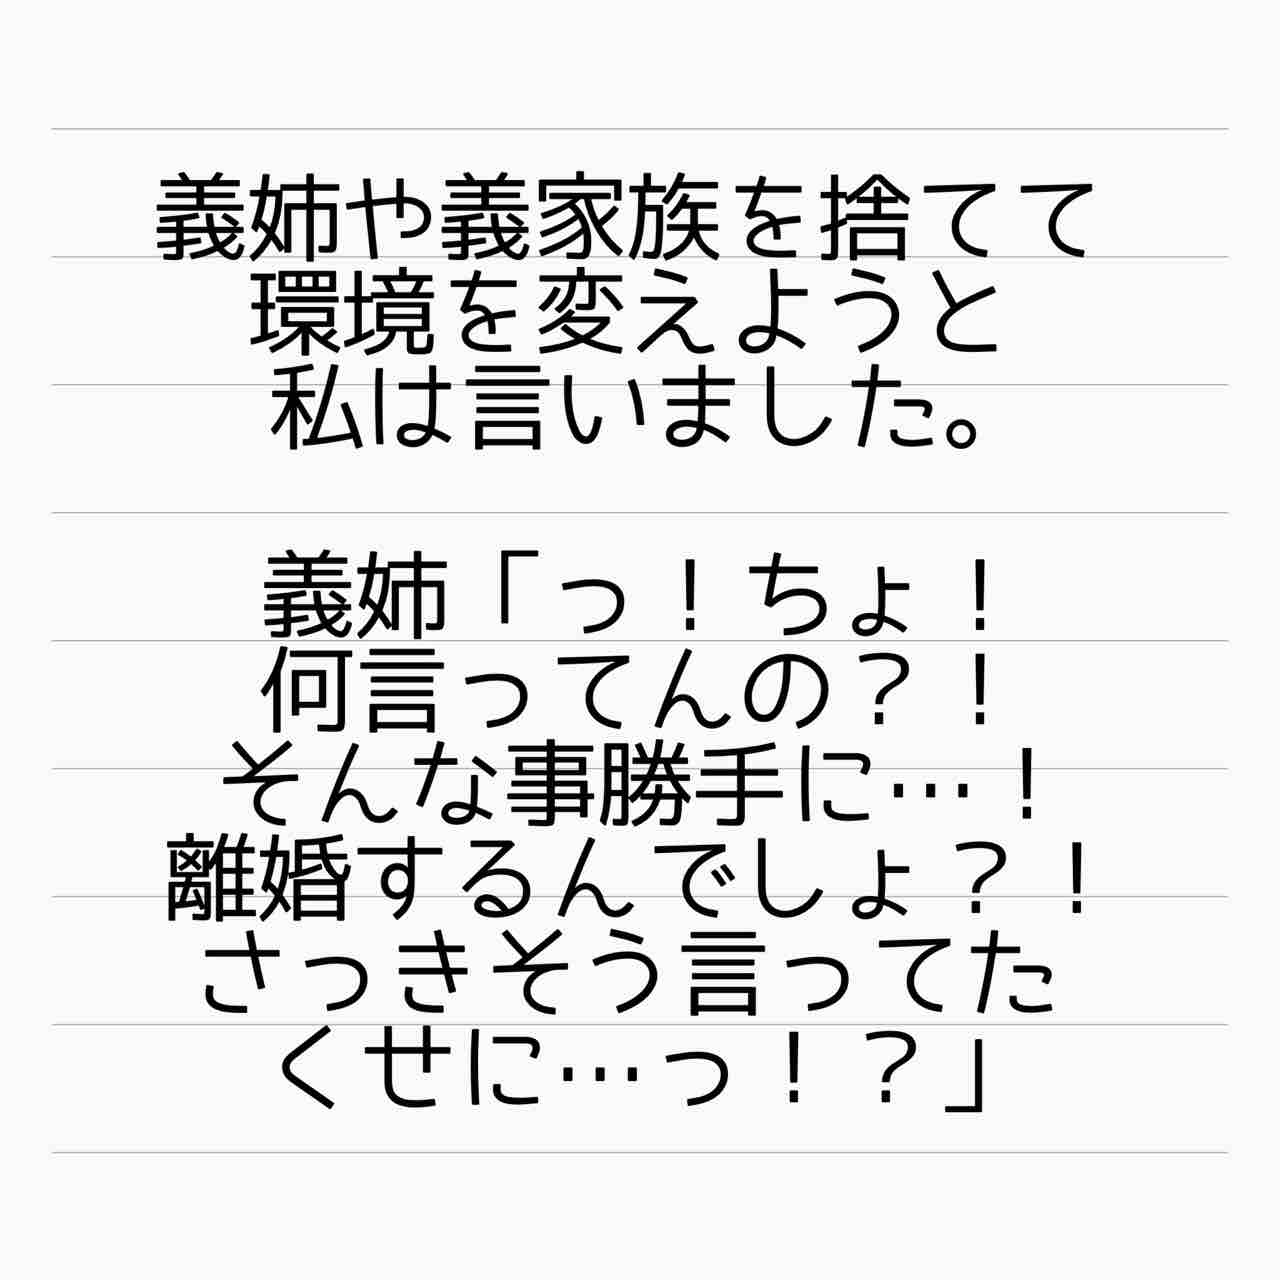 義姉や義家族を捨てて
環境を変えようと
私は言いました。
義姉「っ！ちょ！
何言ってんの？！
そんな事勝手に…！
離婚するんでしょ？！
さっきそう言ってた
くせに…っ！？」